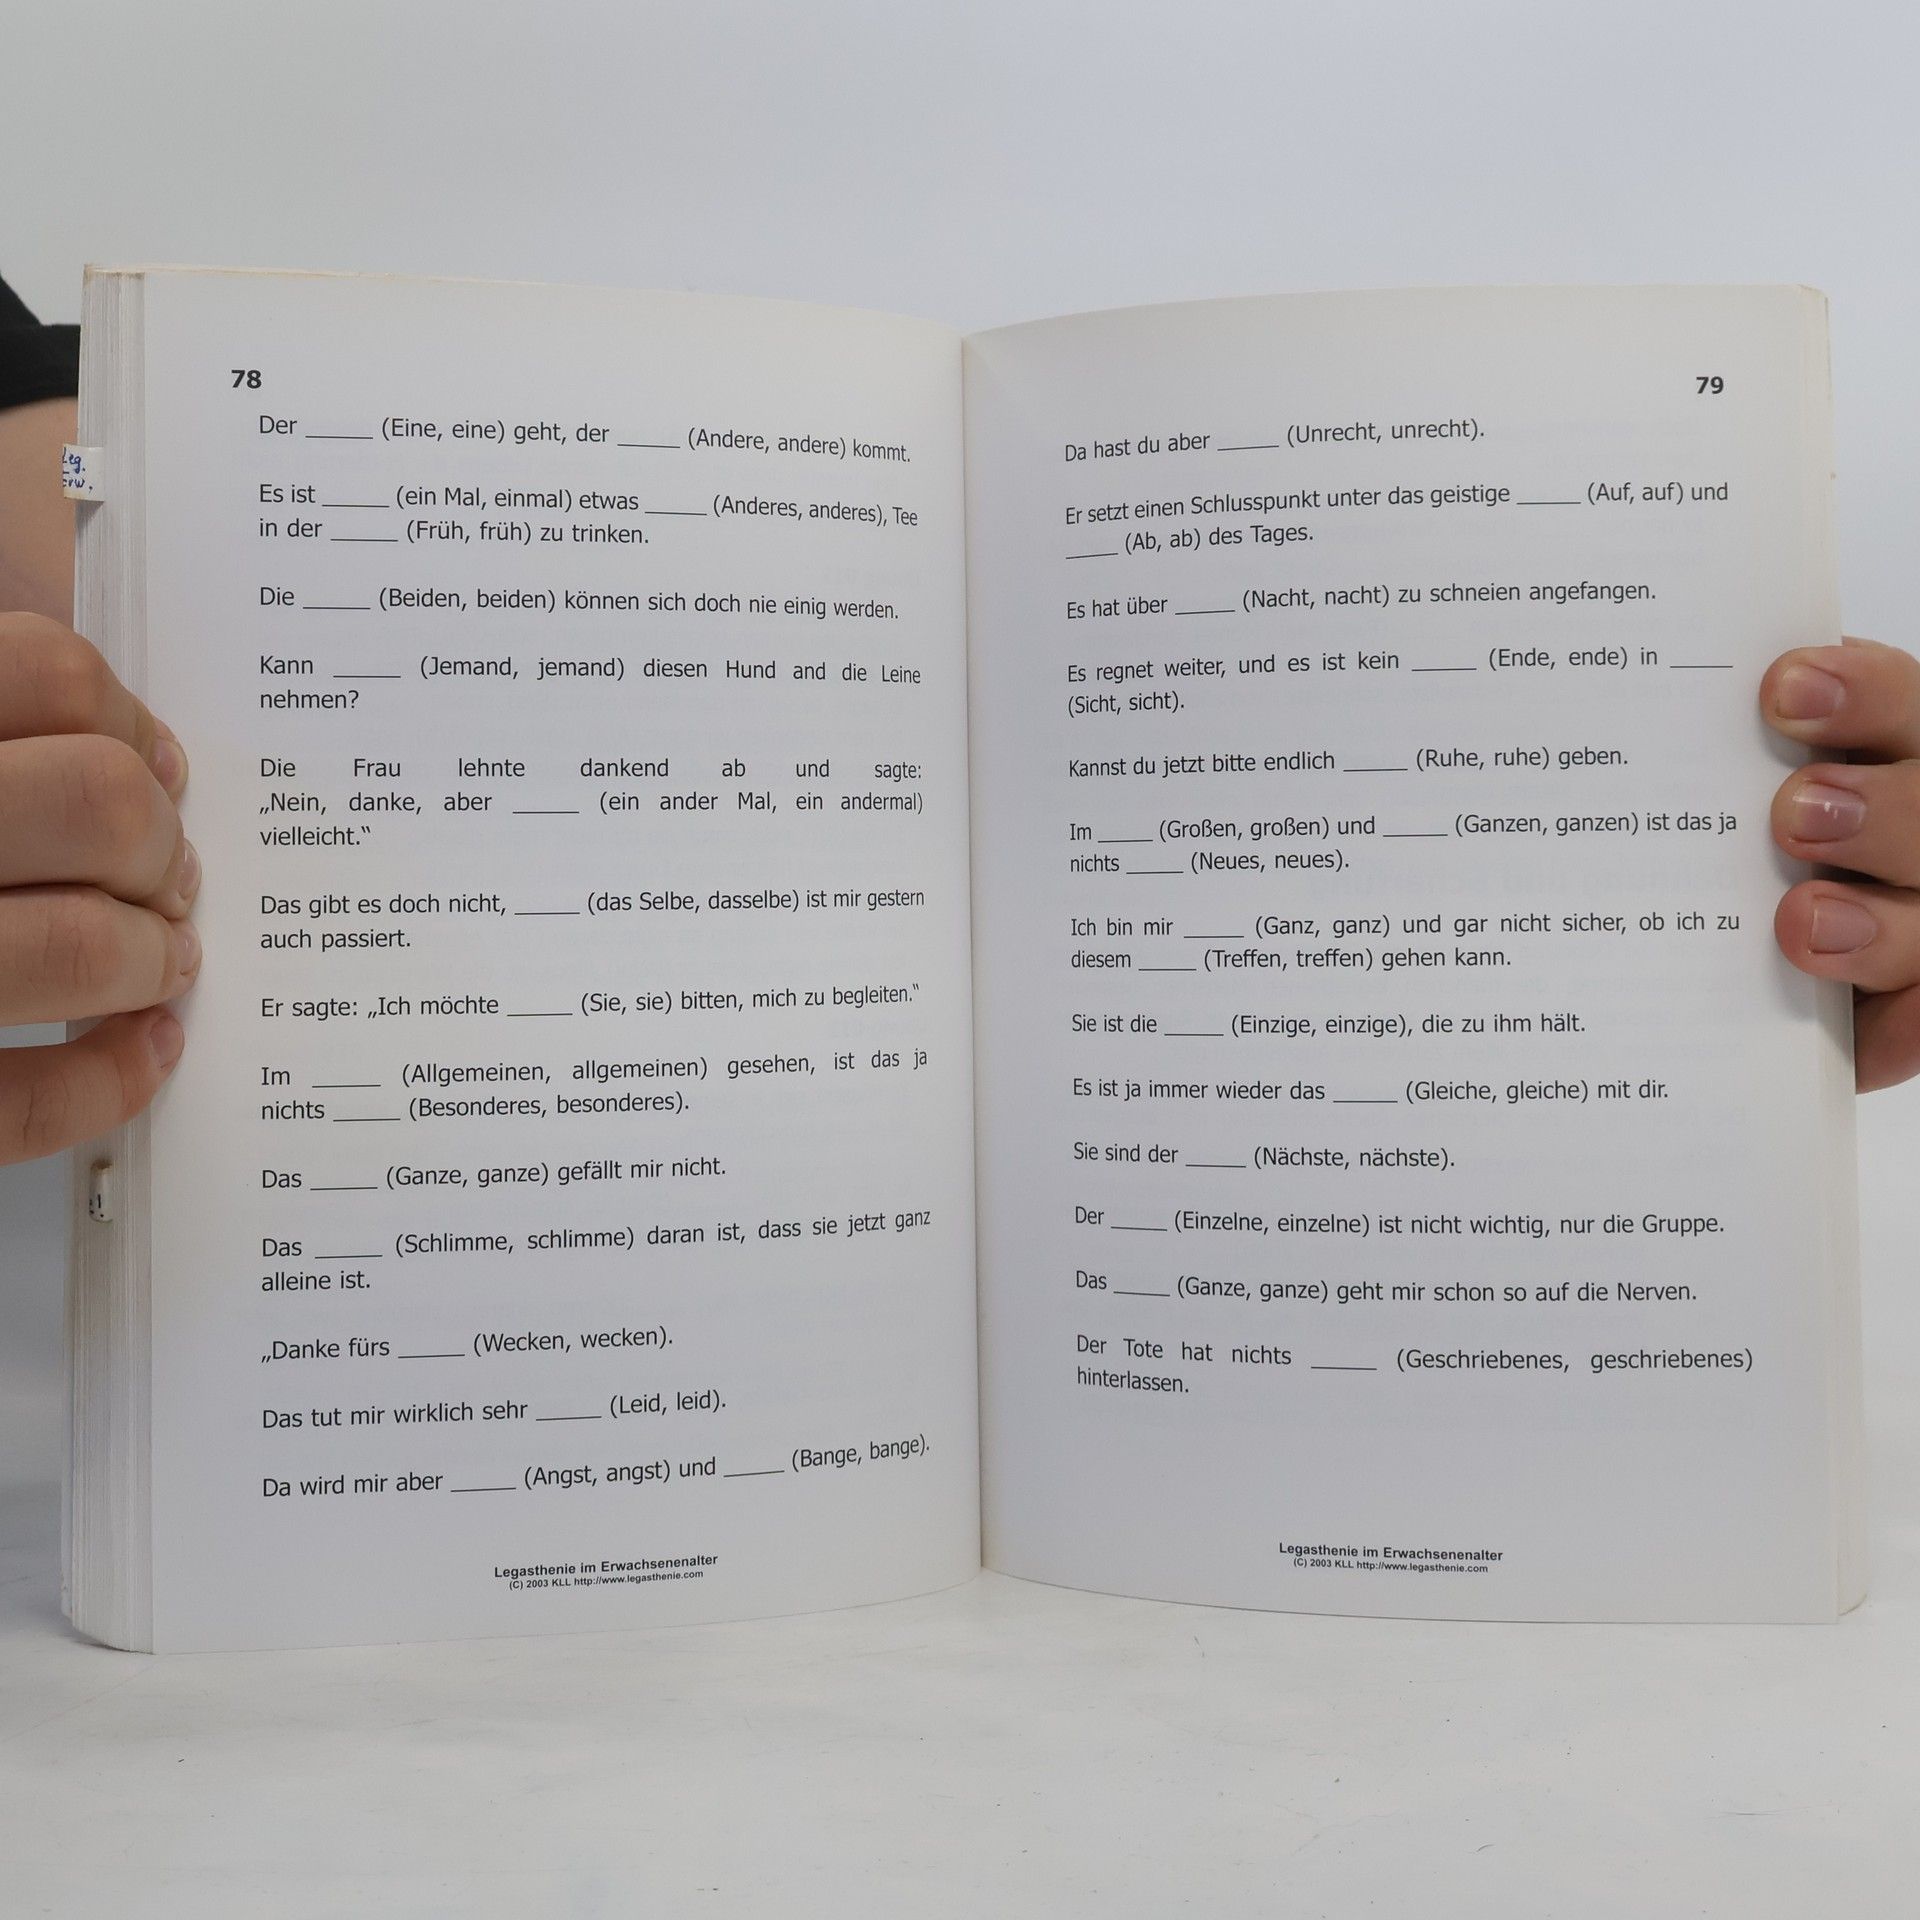 Leg.
Erw.
78
Der _____ (Eine, eine) geht, der _____ (Andere, andere) kommt.
Es ist _____ (ein Mal, einmal) etwas _____ (Anderes, anderes), Tee
in der _____ (Früh, früh) zu trinken.
Die _____ (Beiden, beiden) können sich doch nie einig werden.
Kann _____ (Jemand, jemand) diesen Hund and die Leine
nehmen?
Die Frau lehnte dankend ab und sagte:
„Nein, danke, aber _____ (ein ander Mal, ein andermal)
vielleicht.“
Das gibt es doch nicht, _____ (das Selbe, dasselbe) ist mir gestern
auch passiert.
Er sagte: „Ich möchte _____ (Sie, sie) bitten, mich zu begleiten.“
Im _____ (Allgemeinen, allgemeinen) gesehen, ist das ja
nichts _____ (Besonderes, besonderes).
Das _____ (Ganze, ganze) gefällt mir nicht.
Das _____ (Schlimme, schlimme) daran ist, dass sie jetzt ganz
alleine ist.
„Danke fürs _____ (Wecken, wecken).
Das tut mir wirklich sehr _____ (Leid, leid).
Da wird mir aber _____ (Angst, angst) und _____ (Bange, bange).
Legasthenie im Erwachsenenalter
(C) 2003 KLL http://www.legasthenie.com
79
Da hast du aber _____ (Unrecht, unrecht).
Er setzt einen Schlusspunkt unter das geistige _____ (Auf, auf) und
_____ (Ab, ab) des Tages.
Es hat über _____ (Nacht, nacht) zu schneien angefangen.
Es regnet weiter, und es ist kein _____ (Ende, ende) in _____
(Sicht, sicht).
Kannst du jetzt bitte endlich _____ (Ruhe, ruhe) geben.
Im _____ (Großen, großen) und _____ (Ganzen, ganzen) ist das ja
nichts _____ (Neues, neues).
Ich bin mir _____ (Ganz, ganz) und gar nicht sicher, ob ich zu
diesem _____ (Treffen, treffen) gehen kann.
Sie ist die _____ (Einzige, einzige), die zu ihm hält.
Es ist ja immer wieder das _____ (Gleiche, gleiche) mit dir.
Sie sind der _____ (Nächste, nächste).
Der _____ (Einzelne, einzelne) ist nicht wichtig, nur die Gruppe.
Das _____ (Ganze, ganze) geht mir schon so auf die Nerven.
Der Tote hat nichts _____ (Geschriebenes, geschriebenes)
hinterlassen.
Legasthenie im Erwachsenenalter
(C) 2003 KLL http://www.legasthenie.com